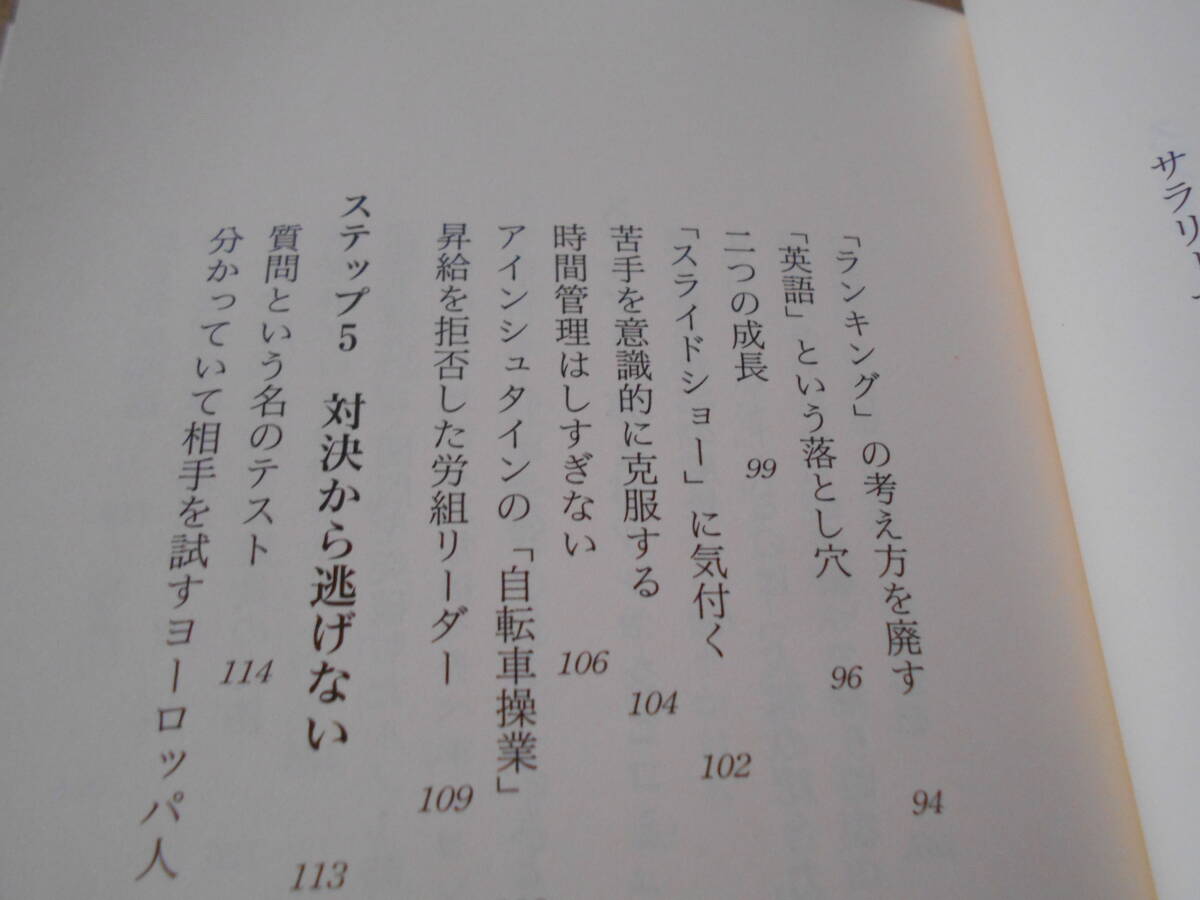 サラリ
「ランキング」の考え方を廃す 94
「英語」という落とし穴 96
二つの成長 99
「スライドショー」に気付く 102
苦手を意識的に克服する 104
時間管理はしすぎない 106
アインシュタインの「自転車操業」
昇給を拒否した労組リーダー 109
ステップ5 対決から逃げない 113
質問という名のテスト 114
分かっていて相手を試すヨーロッパ人